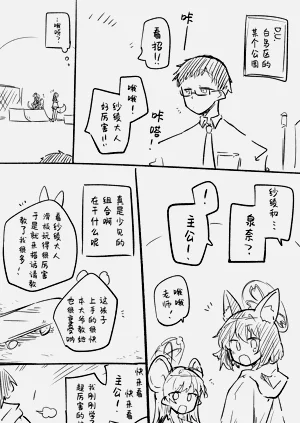 白鸟区的
某个公园
咔
看招!!
哦哦!
纱绫大人
好厉害!!
咔嗒!
…哦呀?
纱绫和…
泉奈?
!
主公!
真是少见的
组合啊
在干什么呢
看纱绫大人
滑板玩得很厉害
于是就来搭话请教
教了我很多!
哦哦!
老师!
这孩子
上手的很快
本大爷教给
也很
快来看
快来看
主公!
我刚刚学了
超厉害的